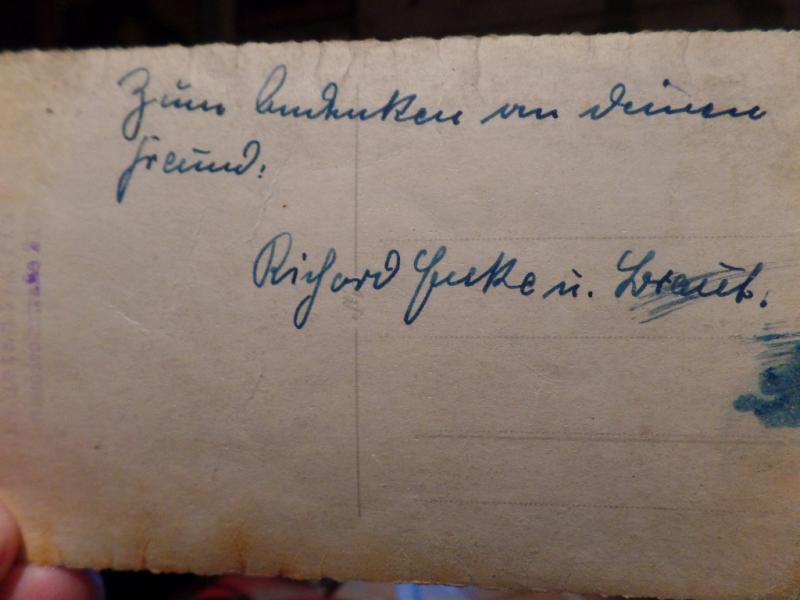 Zum Andenken an deinen
Freund.
Richard u. Braut.